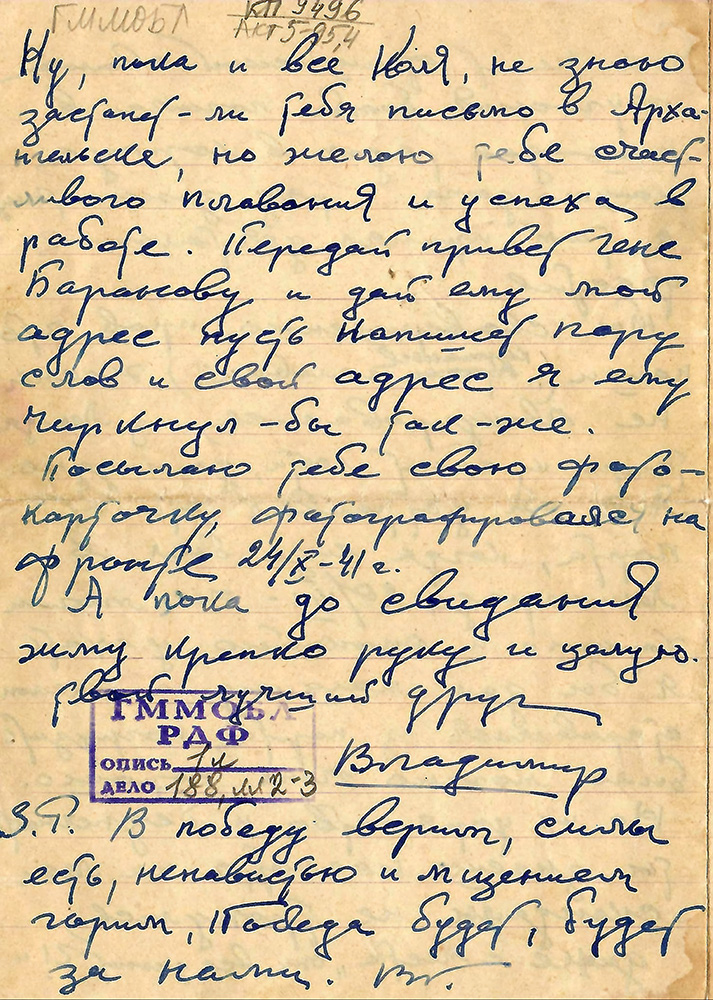 ГММОБЛ КП 9496
Акт 5-95,4
Ну, пока и все Коля, не знаю
застанет-ли тебя письмо в Арха-
нгельске, но желаю тебе счаст-
ливого плавания и успеха в
работе. Передай привет Гене
Баранову и дай ему мой
адрес пусть напишет пару
слов и свой адрес я ему
чиркнул-бы так-же.
Посылаю тебе свою фото-
карточку, фотографировался на
фронте 24/X-41 г.
А пока до свидания
жму крепко руку и целую.
Твой лучший друг
Владимир
ГММОБЛ
РДФ
ОПИСЬ 1л
ДЕЛО 188, лл 2-3
З.Т. В победу верим, силы
есть, ненавистью и мщением
горим, Победа будет, будет
за нами. Вг.